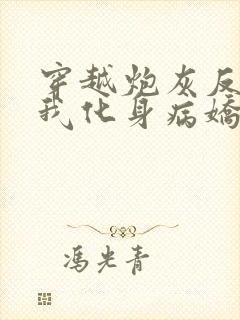 穿越炮灰反
我化身病嬌
馮光青